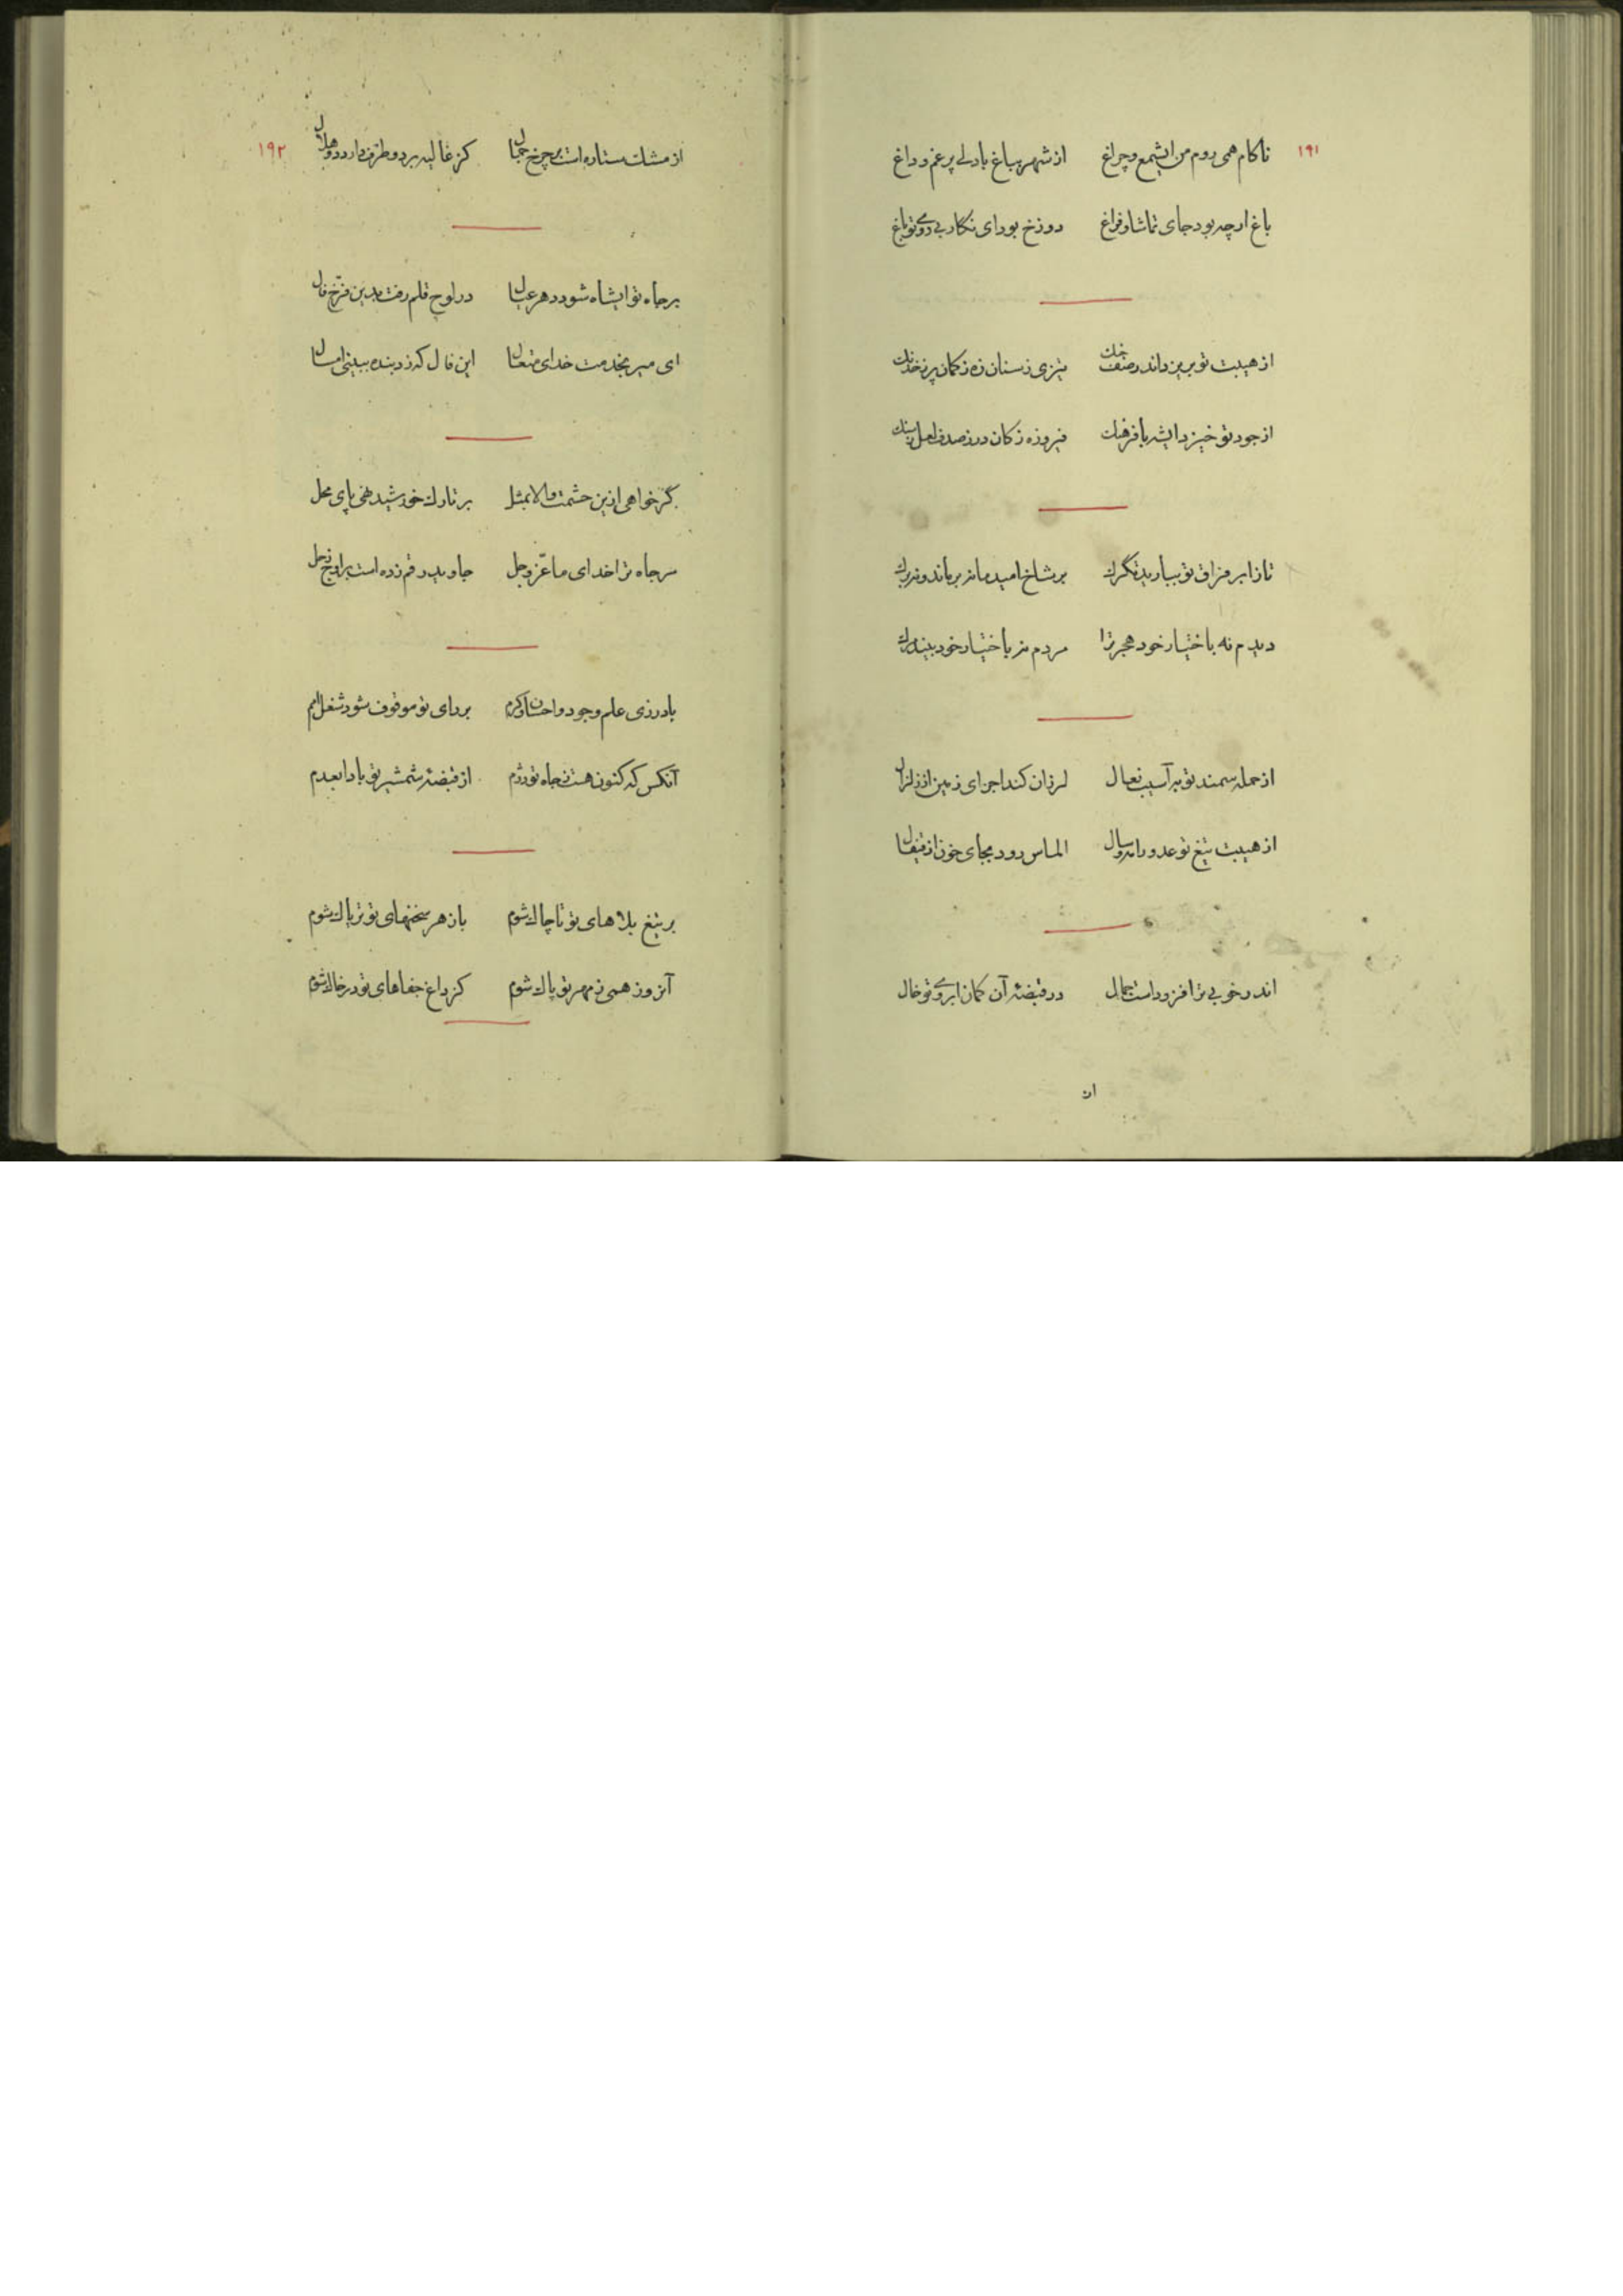 ۱۹۱
ناکام همی روم من ایشمع و چراغ از شهر بباغ بادلی پر غم و داغ
باغ ارچه بود جای تماشا و فراغ دوزخ بود ای نگار بی روی تو باغ
از هیبت تو بریزد اندر صف جنك تیزی ز سنان زه ز کمان پر ز خدنك
از جود تو خیزد ایشه با فرهنك فیروزه ز کان در ز صدف لعل ز سنك
تا ز ابر فراق تو ببارید تگرك بر شاخ امید ما نه بر ماند و نه برك
دیدم نه باختیار خود هجر ترا مردم نه باختیار خود بیند مرك
از حمله سمند تو به آسیب نعال لرزان کند اجزای زمین از زلزال
از هیبت تیغ تو عدو را مه و سال الماس رود بجای خون از قیفال
اندر خوبی ترا فزوداست جمال در قبضه آن کمان ابروی تو خال
از
۱۹۲
از مشك ستاره است بر چرخ جمال کز غالیه بر دو طرف دارد دو هلال
بر جاه تو ایشاه شود دهر عیال در لوح قلم رفت بدین فرخ فال
ای میر بخدمت خدای متعال این فال که زد بنده ببینی امسال
گر خواهی ازین حشمت والا بمثل بر تارك خورشید نهی پای محل
سر جاه ترا خدای ما عز و جل جاوید رقم زده است بر اوج زحل
بادرزی علم و جود و احسان و کرم بر رای تو موقوف شود شغل امم
آنکس که کنون هست ز جاه تو دژم از قبضه شمشیر تو بادا بعدم
بر تیغ بلاهای تو تا چاك شوم با زهر سخنهای تو تریاك شوم
آنروز همی ز مهر تو پاك شوم کز داغ جفاهای تو در خاك شوم